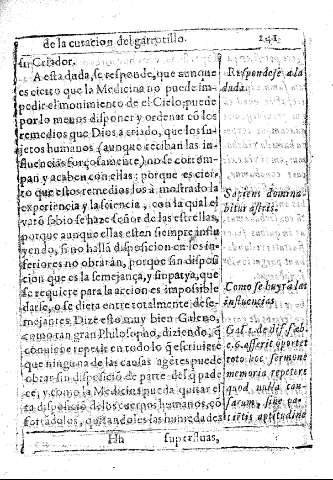 de la curacion del garrotillo. 141
su Criador.
A esta dada, se responde, que aunque
es cierto que la Medicina no puede im
pedir el monimiento de el Cielo, puede
por lo menos disponer y ordenar cō los
remedios que Dios a criado, que los su
jetos humanos (aunque reciban las in
fluencias forçosamente) no se corrom
pan y acaben con ellas: porque es cier
to que estos remedios los à mostrado la
experiencia y la sciencia, con la qual el
varō sabio se haze señor de las estrellas,
porque aunque ellas estēn siempre influ
yendo, si no hallā disposicion en los in
feriores no obrarán, porque sin disposi
ciōn que es la semejança, y sinpatya, que
se requiere para la accion es impossible
darse, o se diera entre totalmente dese-
mejantes. Dize esto muy bien Galeno,
como tan gran Philosopho, diziendo, q̄
conuiene repetir en todo lo q̄ escriuiere
que ninguna de las causas agētes puede
obrar sin disposiciō de parte del q̄ pade
ce, y como la Medicina pueda quitar el
ta disposiciō de los cuerpos humanos, cō
fortādolos, quitandoles las humedades
Hh superfluas,
Respondese a la
duda.
Sapiens domina
bitur astris.
Como se huyrā las
influencias.
Gal. 1. de dif. feb.
c. 6. asserit oportet
toto hoc sermone
memoria repetere
quod nulla cau
sarum, sine pa-
tiētis aptitudine